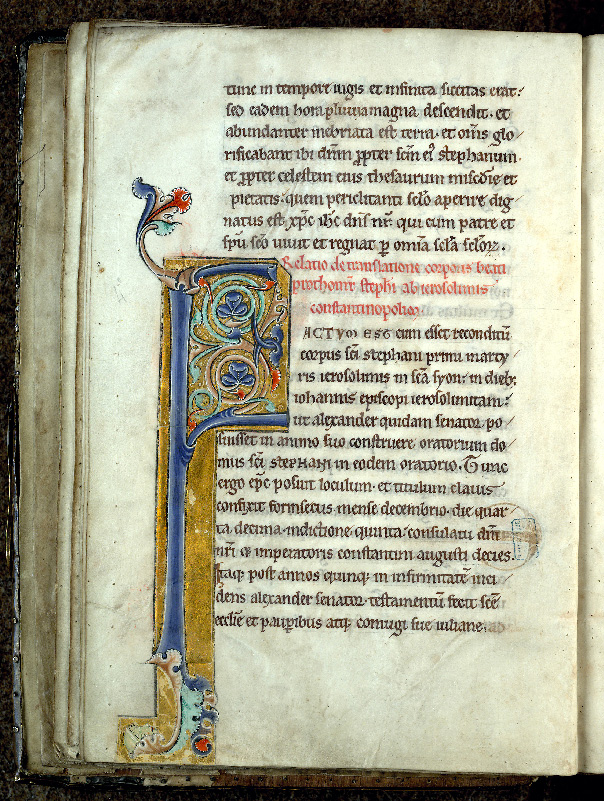 tunc in tempore iugis et infinita siccitas erat:
sed eadem hora pluuia magna descendit. et
abundanter inebriata est terra. et om̄s glo
rificabant ibi dn̄m ꝓpter scm̄ ei᷒ stephanum.
et ꝓpter celestem eius thesaurum miscdīe et
pietatis: quem periclitanti sclo aperire dig
natus est xp̄c ihc̄ dn̄s nr̄: qui cum patre et
spū sc̄o uiuit et regnat ꝑ omīa scl̄a scl̄oꝝ.
Relatio de translatione corporis beati
prothom̄r stephi ab ierosolimis
constantinopolim
FACTUM EST cum esset reconditū
corpus sc̄i stephani primi marty
ris ierosolimis in sc̄a syon: in dieb;
iohannis episcopi ierosolimitani:
ut alexander quidam senator po
suisset in animo suo construere oratorium do
mus sc̄i STEPHANI in eodem oratorio. Tunc
ergo ep̄c posuit loculum. et titulum clauis
confixit forinsecus. mense decembrio. die quar
ta decima. indictione quinta. consulatu dn̄i
nr̄i q; imperatoris constantini augusti decies.
Itaq; post annos quinq; in infirmitatē inci
dens alexander senator. testamentū fecit scē
ecclīe et pauꝑibus atq; coniugi sue iuliane.